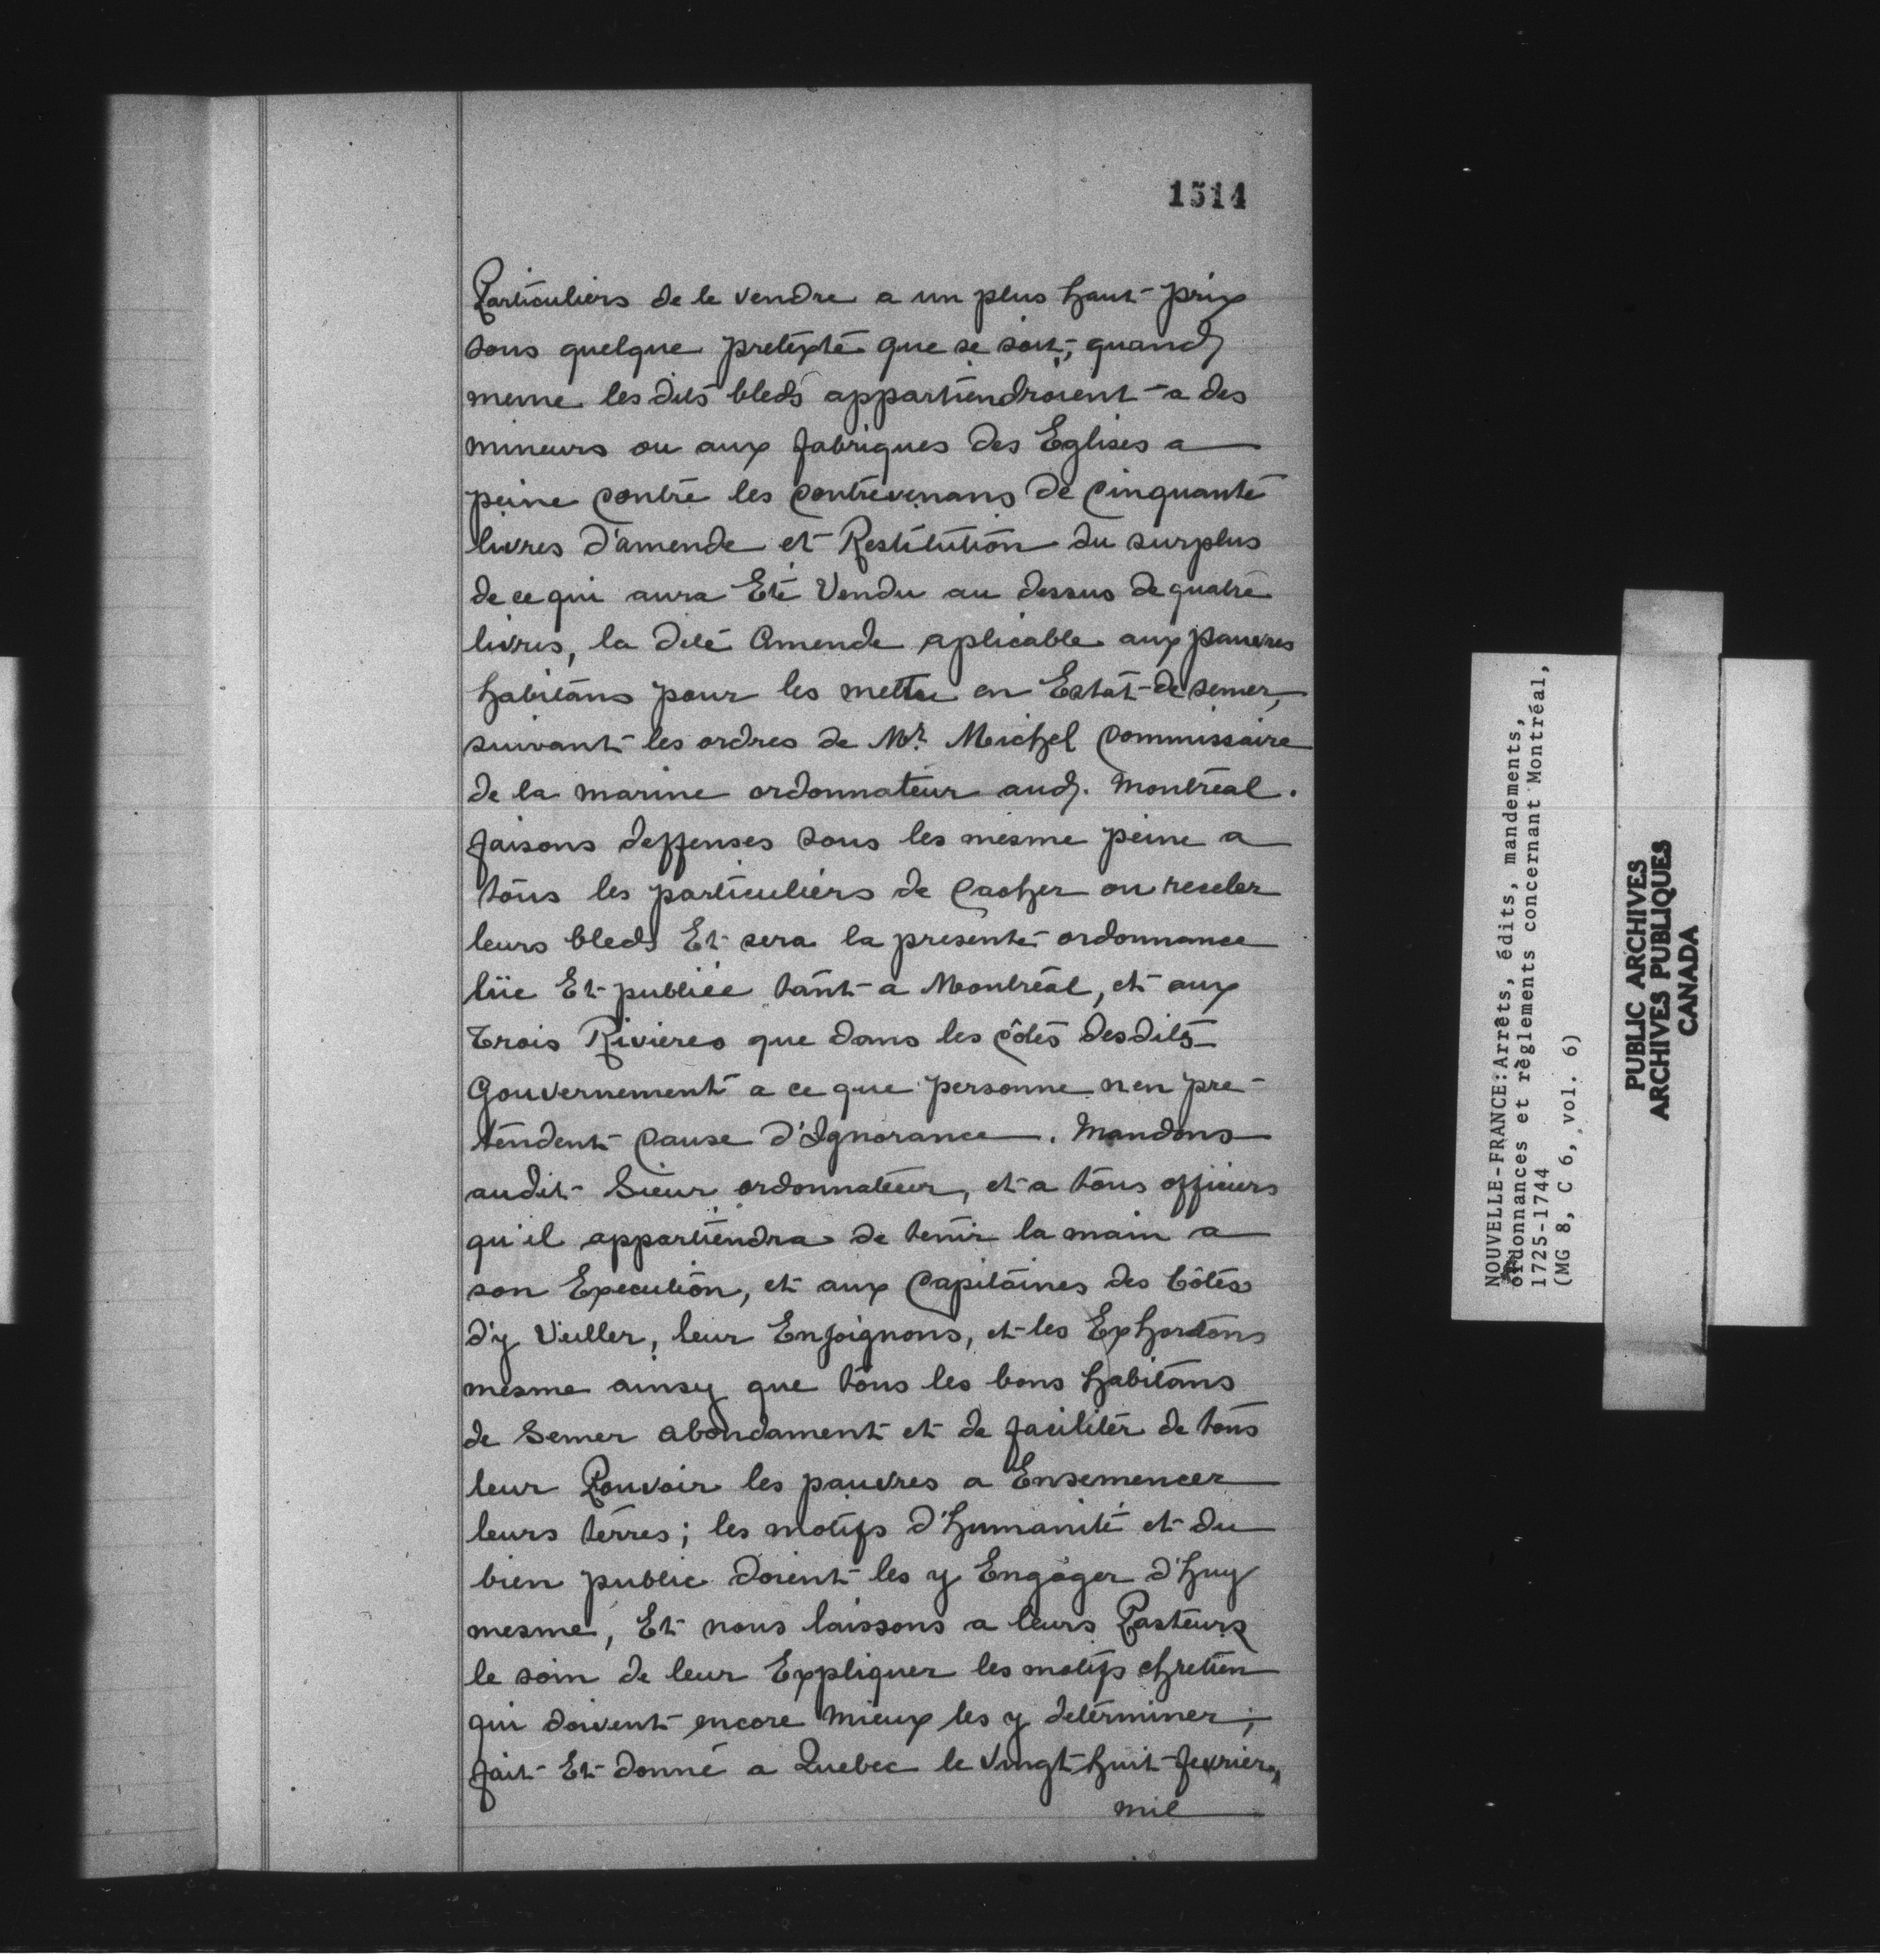 1514
Particuliers de le vendre a un plus haut prix
sous quelque pretexte que se soit, quand
meme les dits bleds appartiendroient a des
mineurs ou aux fabriques des Eglises a
peine contre les contrevenans de cinquante
livres d'amende et Restitution du surplus
de ce qui aura Eté Vendu au dessus de quatre
livres, la dite Amende aplicable aux pauvres
habitans pour les mettre en Estat de semer,
suivant les ordres de Mr. Michel Commissaire
de la marine ordonnateur aud. Montreal.
faisons deffenses sous les mesme peine a
tous les particuliers de cacher ou receler
leurs bleds Et sera la presente ordonnance
lüe Et publiée tant a Montreal, et aux
Trois Rivieres que dans les côtes desdits
Gouvernement a ce que personne n'en pre-
tendent cause d'Ignorance. Mandons
audit Sieur ordonnateur, et a tous officiers
qu'il appartiendra de tenir la main a
son Execution, et aux Capitaines des Côtes
d'y Veiller, leur Enjoignons, et les Exhortons
mesme ainsy que tous les bons habitans
de Semer abondament et de faciliter de tous
leur Pouvoir les pauvres a Ensemencer
leurs terres; les motifs d'humanité et du
bien public doient les y Engager d'huy
mesme, Et nous laissons a leurs Pasteurs
le soin de leur Expliquer les motifs chretien
qui doivent encore Mieux les y determiner;
fait Et donné a Quebec le Vingt huit fevrier,
mil
NOUVELLE-FRANCE: Arrêts, édits, mandements,
ordonnances et règlements concernant Montréal,
1725-1744
(MG 8, C 6, vol. 6)
PUBLIC ARCHIVES
ARCHIVES PUBLIQUES
CANADA